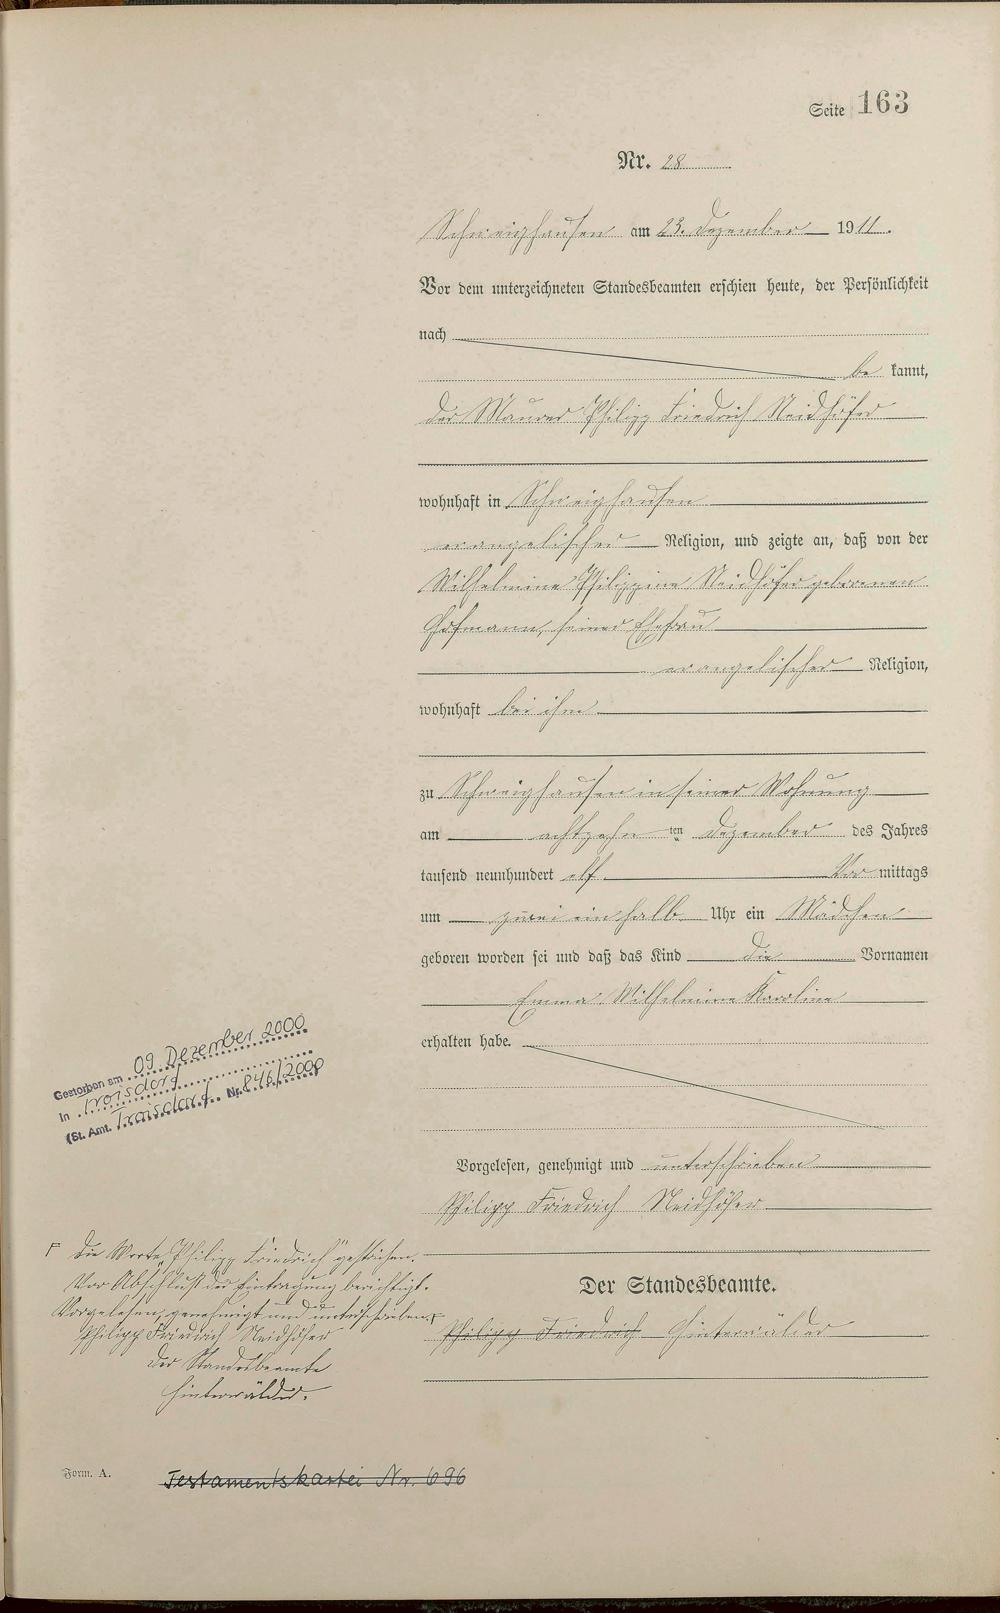 Seite 163
Nr. 28
Schweighausen am 23. Dezember 1911.
Vor dem unterzeichneten Standesbeamten erschien heute, der Persönlichkeit
nach
be kannt,
der Maurer Philipp Friedrich Neidhöfer
wohnhaft in Schweighausen
evangelischer Religion, und zeigte an, daß von der
Wilhelmine Philippine Neidhöfer geborenen
Hofmann, seiner Ehefrau
evangelischer Religion,
wohnhaft bei ihm
zu Schweighausen in seiner Wohnung
am achtzehn ten Dezember des Jahres
tausend neunhundert elf Vor mittags
um zwei ein halb Uhr ein Mädchen
geboren worden sei und daß das Kind die Vornamen
Emma Wilhelmine Karoline
erhalten habe.
Gestorben am 09. Dezember 2000
in Troisdorf
(St. Amt. Troisdorf Nr. 846/2000)
Vorgelesen, genehmigt und unterschrieben
Philipp Friedrich Neidhöfer
Die Worte „Philipp Friedrich" gestrichen.
Vor Abschluß der Eintragung berichtigt.
Vorgelesen, genehmigt und unterschrieben.
Philipp Friedrich Neidhöfer
Der Standesbeamte
Hinterwälder.
Der Standesbeamte.
Philipp Friedrich Hinterwälder
Form. A.
Testamentskartei Nr. 696